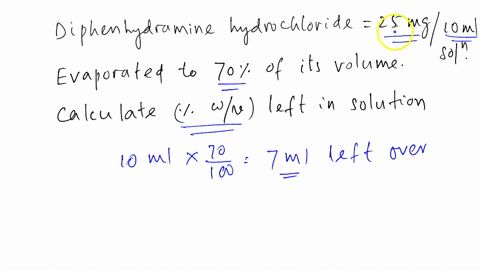 Diphenhydramine hydrochloride = 25 mg/10 ml soln.
Evaporated to 70% of its volume.
Calculate (% w/v) left in solution
10 ml × 70/100 = 7 ml left over